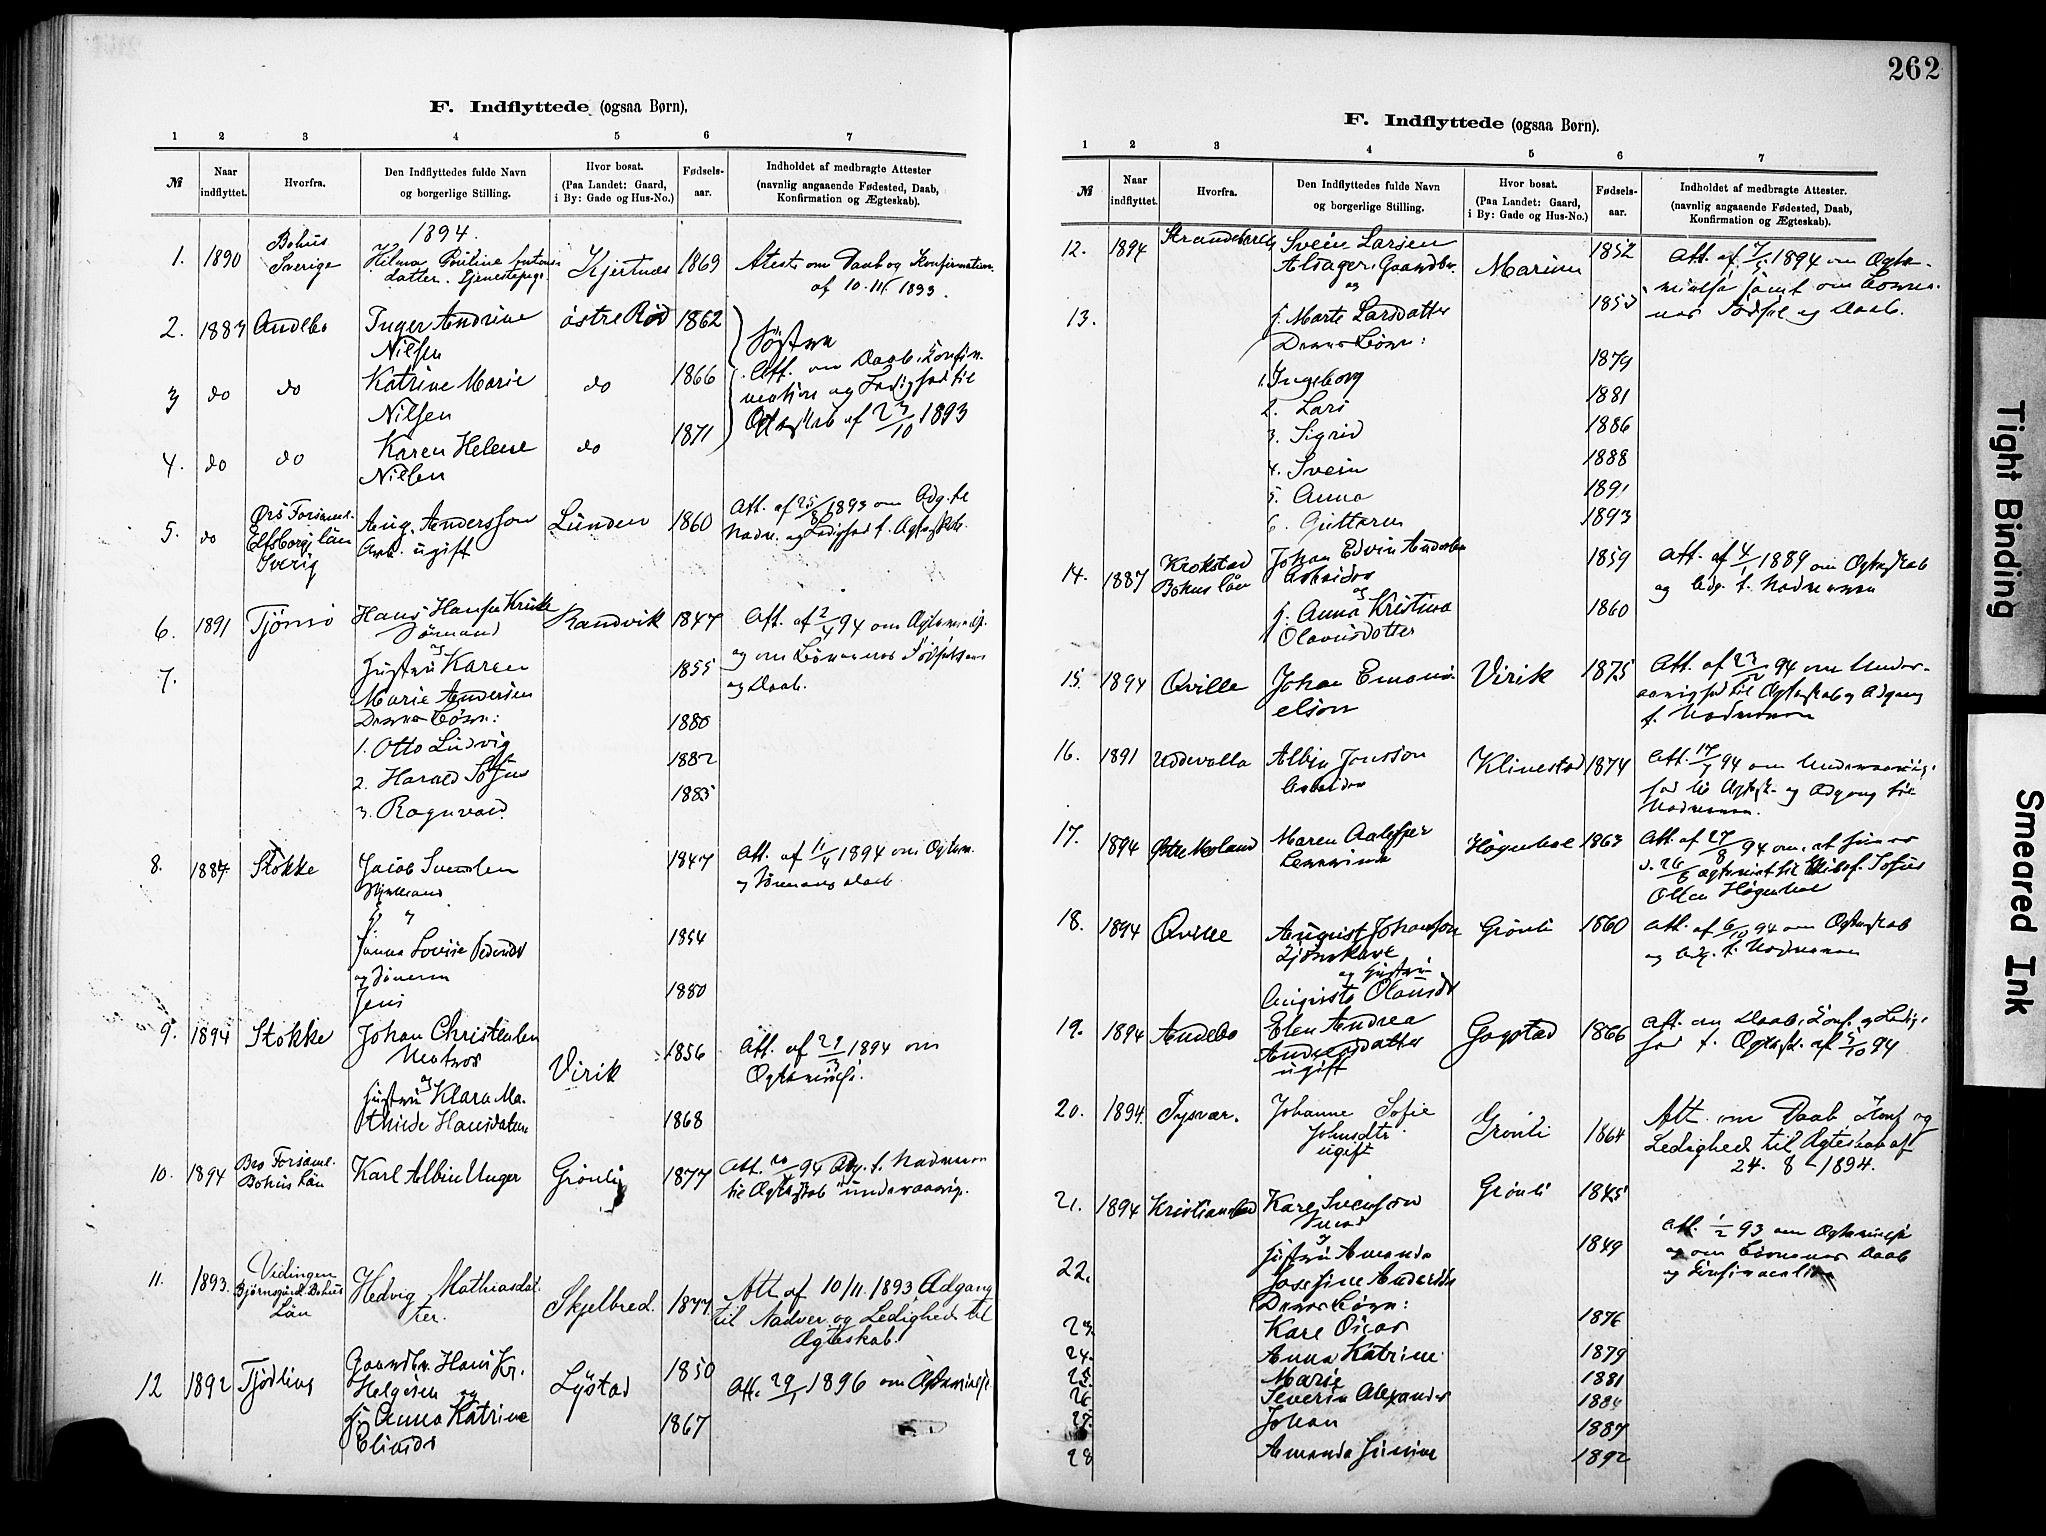 F. Indflyttede (ogsaa Børn),
1 2 3 4 5 6 7
№ Naar indflyttet. Hvorfra. Den Indflyttedes fulde Navn og borgerlige Stilling. Hvor bosat. (Paa Landet: Gaard, i By: Gade og Hus-No.) Fødselsaar. Indholdet af medbragte Attester (navnlig angaaende Fødested, Daab, Konfirmation og Ægteskab).
1894.
1. 1890 Bohus Kjertnæs 1869 Attest om Daab og Konfirmation
Sverige Hilma Pauline
datter. Tjenestepige af 10.11. 1893.
2. 1887 Andebo Inger Andrine østre Rød 1862 Søstre
Nilsen
3 do do Katrine Marie do 1866 Att. om Daab, Konfir-
Nilsen mation og Ledighed til
Ægteskab af 23/10 1893
4. do do Karen Helene do 1871
Nilsen
5. do Ørs Forsaml. Aug. Andersson Lunden 1860 Att. af 25/8 1893 om Adg. til
Elfsborgs län Arb. ugift Nadv. og Ledighed t. Ægteskab.
Sverig
6. 1891 Tjømø Hans Hansen Krukke Randvik 1847 Att. af 2/4 94 om Ægtevielse
Sømand og om Børnenes Fødsel
og og Daab.
7. Hustru Karen 1855
Marie Andersen
Deres Børn:
1. Otto Ludvig 1880
2. Harald Sofus 1882
3. Ragnvald. 1885
8. 1887 Stokke Jacob Svendsen 1847 Att. af 11/4 1894 om Ægtev.
og Sønnens Daab.
Janna Lovise 1854
og Sønnen
Jens 1880
9. 1894 Stokke Johan Christensen Virik 1856 Att. af 29/3 1894 om
Matros Ægtevielse.
og
Hustru Klara Ma- 1868
thilde Hansdatter
10. 1894 Bro Forsaml. Karl Albin Unger Grønli 1877 Att. 94 Adg. t. Nadveren
Bohus Län til Ægteskab underaarig.
11. 1893. Hedvig Mathiasdat- Skjelbred. 1877. Att af 10/11. 1893 Adgang
Bohus ter. til Nadver. og Ledighed til
Län Ægteskab.
12 1892 Tjødling Gaardbr. Hans Kr. Lystad 1850 Att. 29/1 1896 om Ægtevielse
Helgesen og
H. Anna Katrine 1867
262
F. Indflyttede (ogsaa Børn).
1 2 3 4 5 6 7
№ Naar indflyttet. Hvorfra. Den Indflyttedes fulde Navn og borgerlige Stilling. Hvor bosat. (Paa Landet: Gaard, i By: Gade og Hus-No.) Fødselsaar. Indholdet af medbragte Attester. (navnlig angaaende Fødested, Daab, Konfirmation og Ægteskab).
12. 1894 Strandebarm Svein Larsen 1852 Att. af 1894 om Ægte-
Alsager, Gaardbr. Marum vielse samt om Børne-
og nes Fødsel og Daab.
13. H. Marte Larsdatter
Deres Børn:
1. Ingeborg 1879
2. Lars 1881
3. Sigrid 1886
4. Svein 1888
5. Anna 1891
6. Guttorm 1893
14. 1887 Krokstad Johan Edvin Andersen 1859 Att. af 1889 om Ægteskab
Bohus län Arbeider og Adg. t. Nadveren
og
H. Anna Kristina 1860
Olavusdotter
15. 1894 Qville Johan Emanu- Virik 1875 Att. af 94 om Under-
elson aarighed til Ægteskab og Adgang
t. Nadveren
16. 1891 Uddevalla Albin Jonsson Klinestad 1874 Att. 94 om Underaarig-
Arbeider hed til Ægtesk. og Adgang til
Nadveren
17. 1894 Østre Moland Maren Høgenhal 1863 Att. af 27/8 94 om, at hun er
Lovrine d. 26/8 ægteviet til Sofus
Olsen Høgenhal
18. 1894 Qville August Johansson Grønli 1860 Att. af 6/10 94 om Ægteskab
og Adg. t. Nadveren
og Hustru
Augusta
19. 1894 Andebo Elen Andrea Gogstad 1866 Att. om Daab, Konf. og Ledig-
Andersdatter hed t. Ægtesk. af 5/10 94
ugift
20. 1894. Tysvær. Johanne Sofie Grønli 1864 Att. om Daab Konf og
Johnsdtr. Ledighed til Ægteskab af
ugift 24. 8 - 1894.
21. 1894 Kristiansand Karl Svensson Grønli 1845
Smed
og Att. 1/2 93 om Ægtevielse
Hustru Amanda 1849 og om Børnenes Daab
22. Josefine og Konfirmation
Deres Børn:
23 Karl Oscar 1876
24. Anna Katrine 1879
25. Marie 1881
26 Severin Alexander 1884
27. Johan 1887
28 Amanda 1892
Tight Binding
Smeared Ink